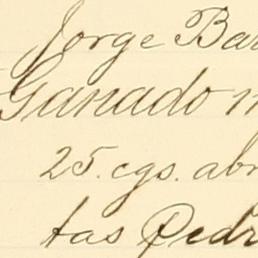 Jorge Bar
Ganado m
25. cgs. abr
tas Pedr